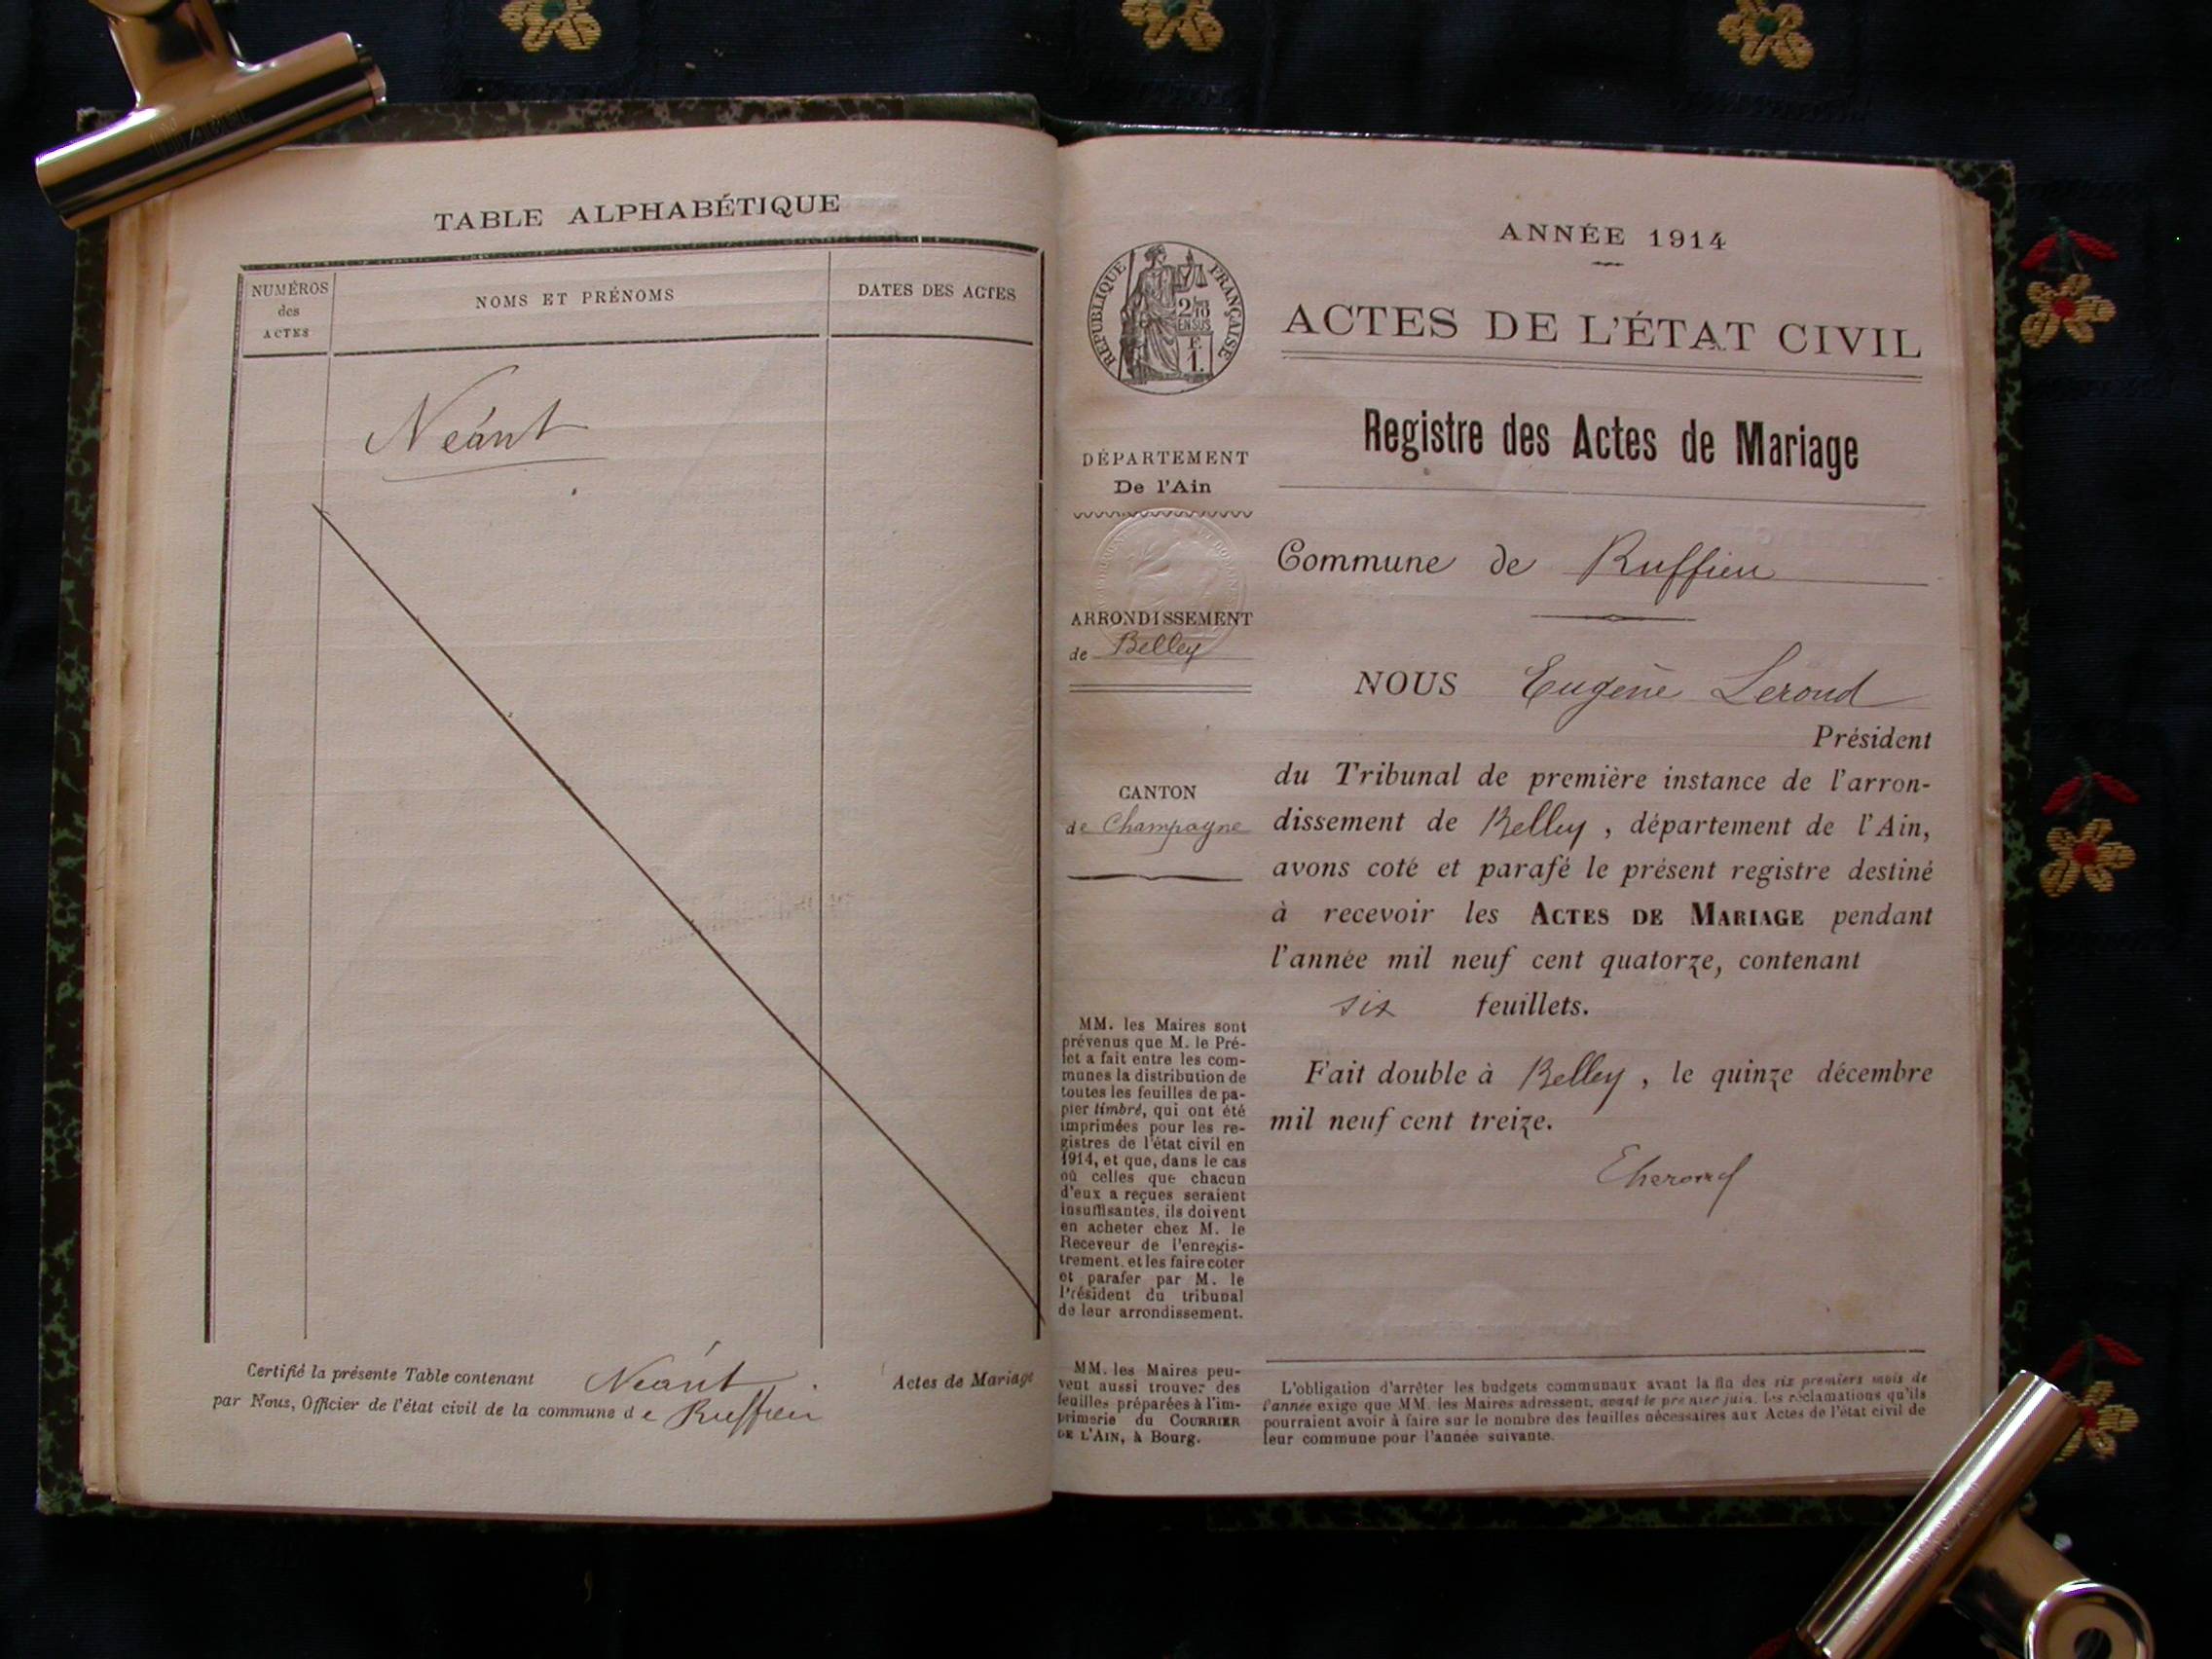 TABLE ALPHABÉTIQUE
NUMÉROS
des
ACTES
NOMS ET PRÉNOMS
DATES DES ACTES
Néant
Certifié la présente Table contenant Néant Actes de Mariage
par Nous, Officier de l'état civil de la commune de Ruffieu
RÉPUBLIQUE FRANÇAISE
2/10
EN SUS
F.
1.
DÉPARTEMENT
De l'Ain
ARRONDISSEMENT
de Belley
CANTON
de Champagne
MM. les Maires sont
prévenus que M. le Pré-
fet a fait entre les com-
munes la distribution de
toutes les feuilles de pa-
pier timbré, qui ont été
imprimées pour les re-
gistres de l'état civil en
1914, et que, dans le cas
où celles que chacun
d'eux a reçues seraient
insuffisantes, ils doivent
en acheter chez M. le
Receveur de l'enregis-
trement, et les faire coter
et parafer par M. le
Président du tribunal
de leur arrondissement.
MM. les Maires peu-
vent aussi trouver des
feuilles préparées à l'im-
primerie du COURRIER
DE L'AIN, à Bourg.
ANNÉE 1914
ACTES DE L'ÉTAT CIVIL
Registre des Actes de Mariage
Commune de Ruffieu
NOUS Eugène Lerond
Président
du Tribunal de première instance de l'arron-
dissement de Belley, département de l'Ain,
avons coté et parafé le présent registre destiné
à recevoir les ACTES DE MARIAGE pendant
l'année mil neuf cent quatorze, contenant
six feuillets.
Fait double à Belley, le quinze décembre
mil neuf cent treize.
L'obligation d'arrêter les budgets communaux avant la fin des six premiers mois de
l'année exige que MM. les Maires adressent, avant le premier juin, les réclamations qu'ils
pourraient avoir à faire sur le nombre des feuilles nécessaires aux Actes de l'état civil de
leur commune pour l'année suivante.